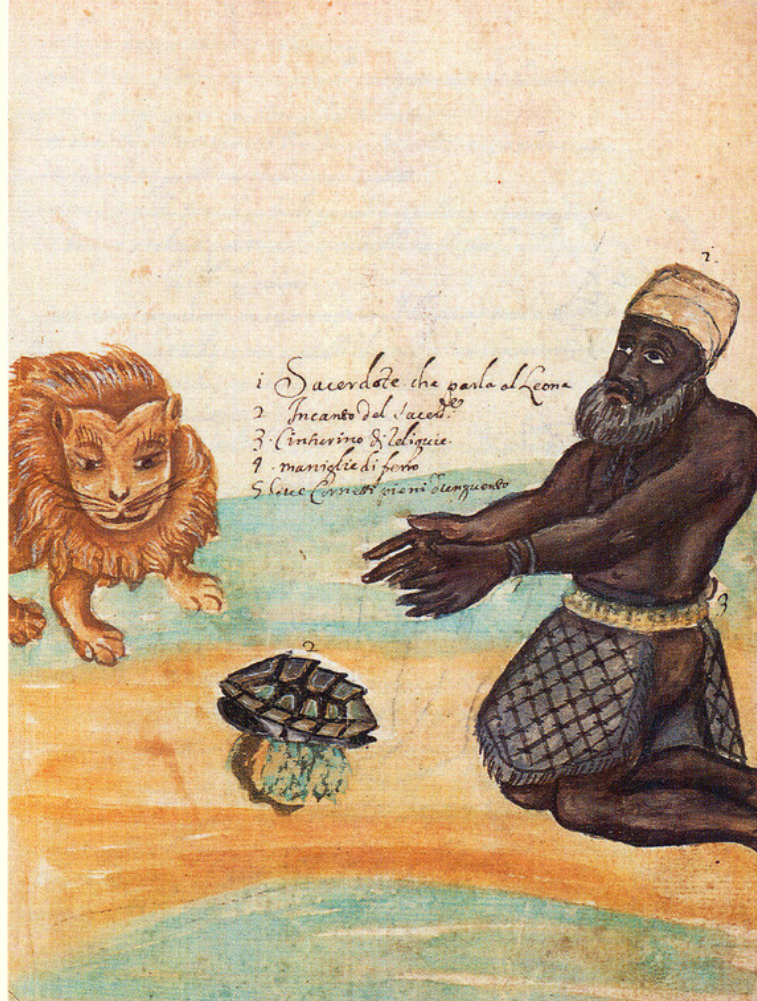 1
1 Sacerdote che parla al Leone
2 Incanto del Sacerd.te
3. Cinturino di Reliquie.
4. maniglie di ferro
5. Cornetti pieni d'unguento
2
3